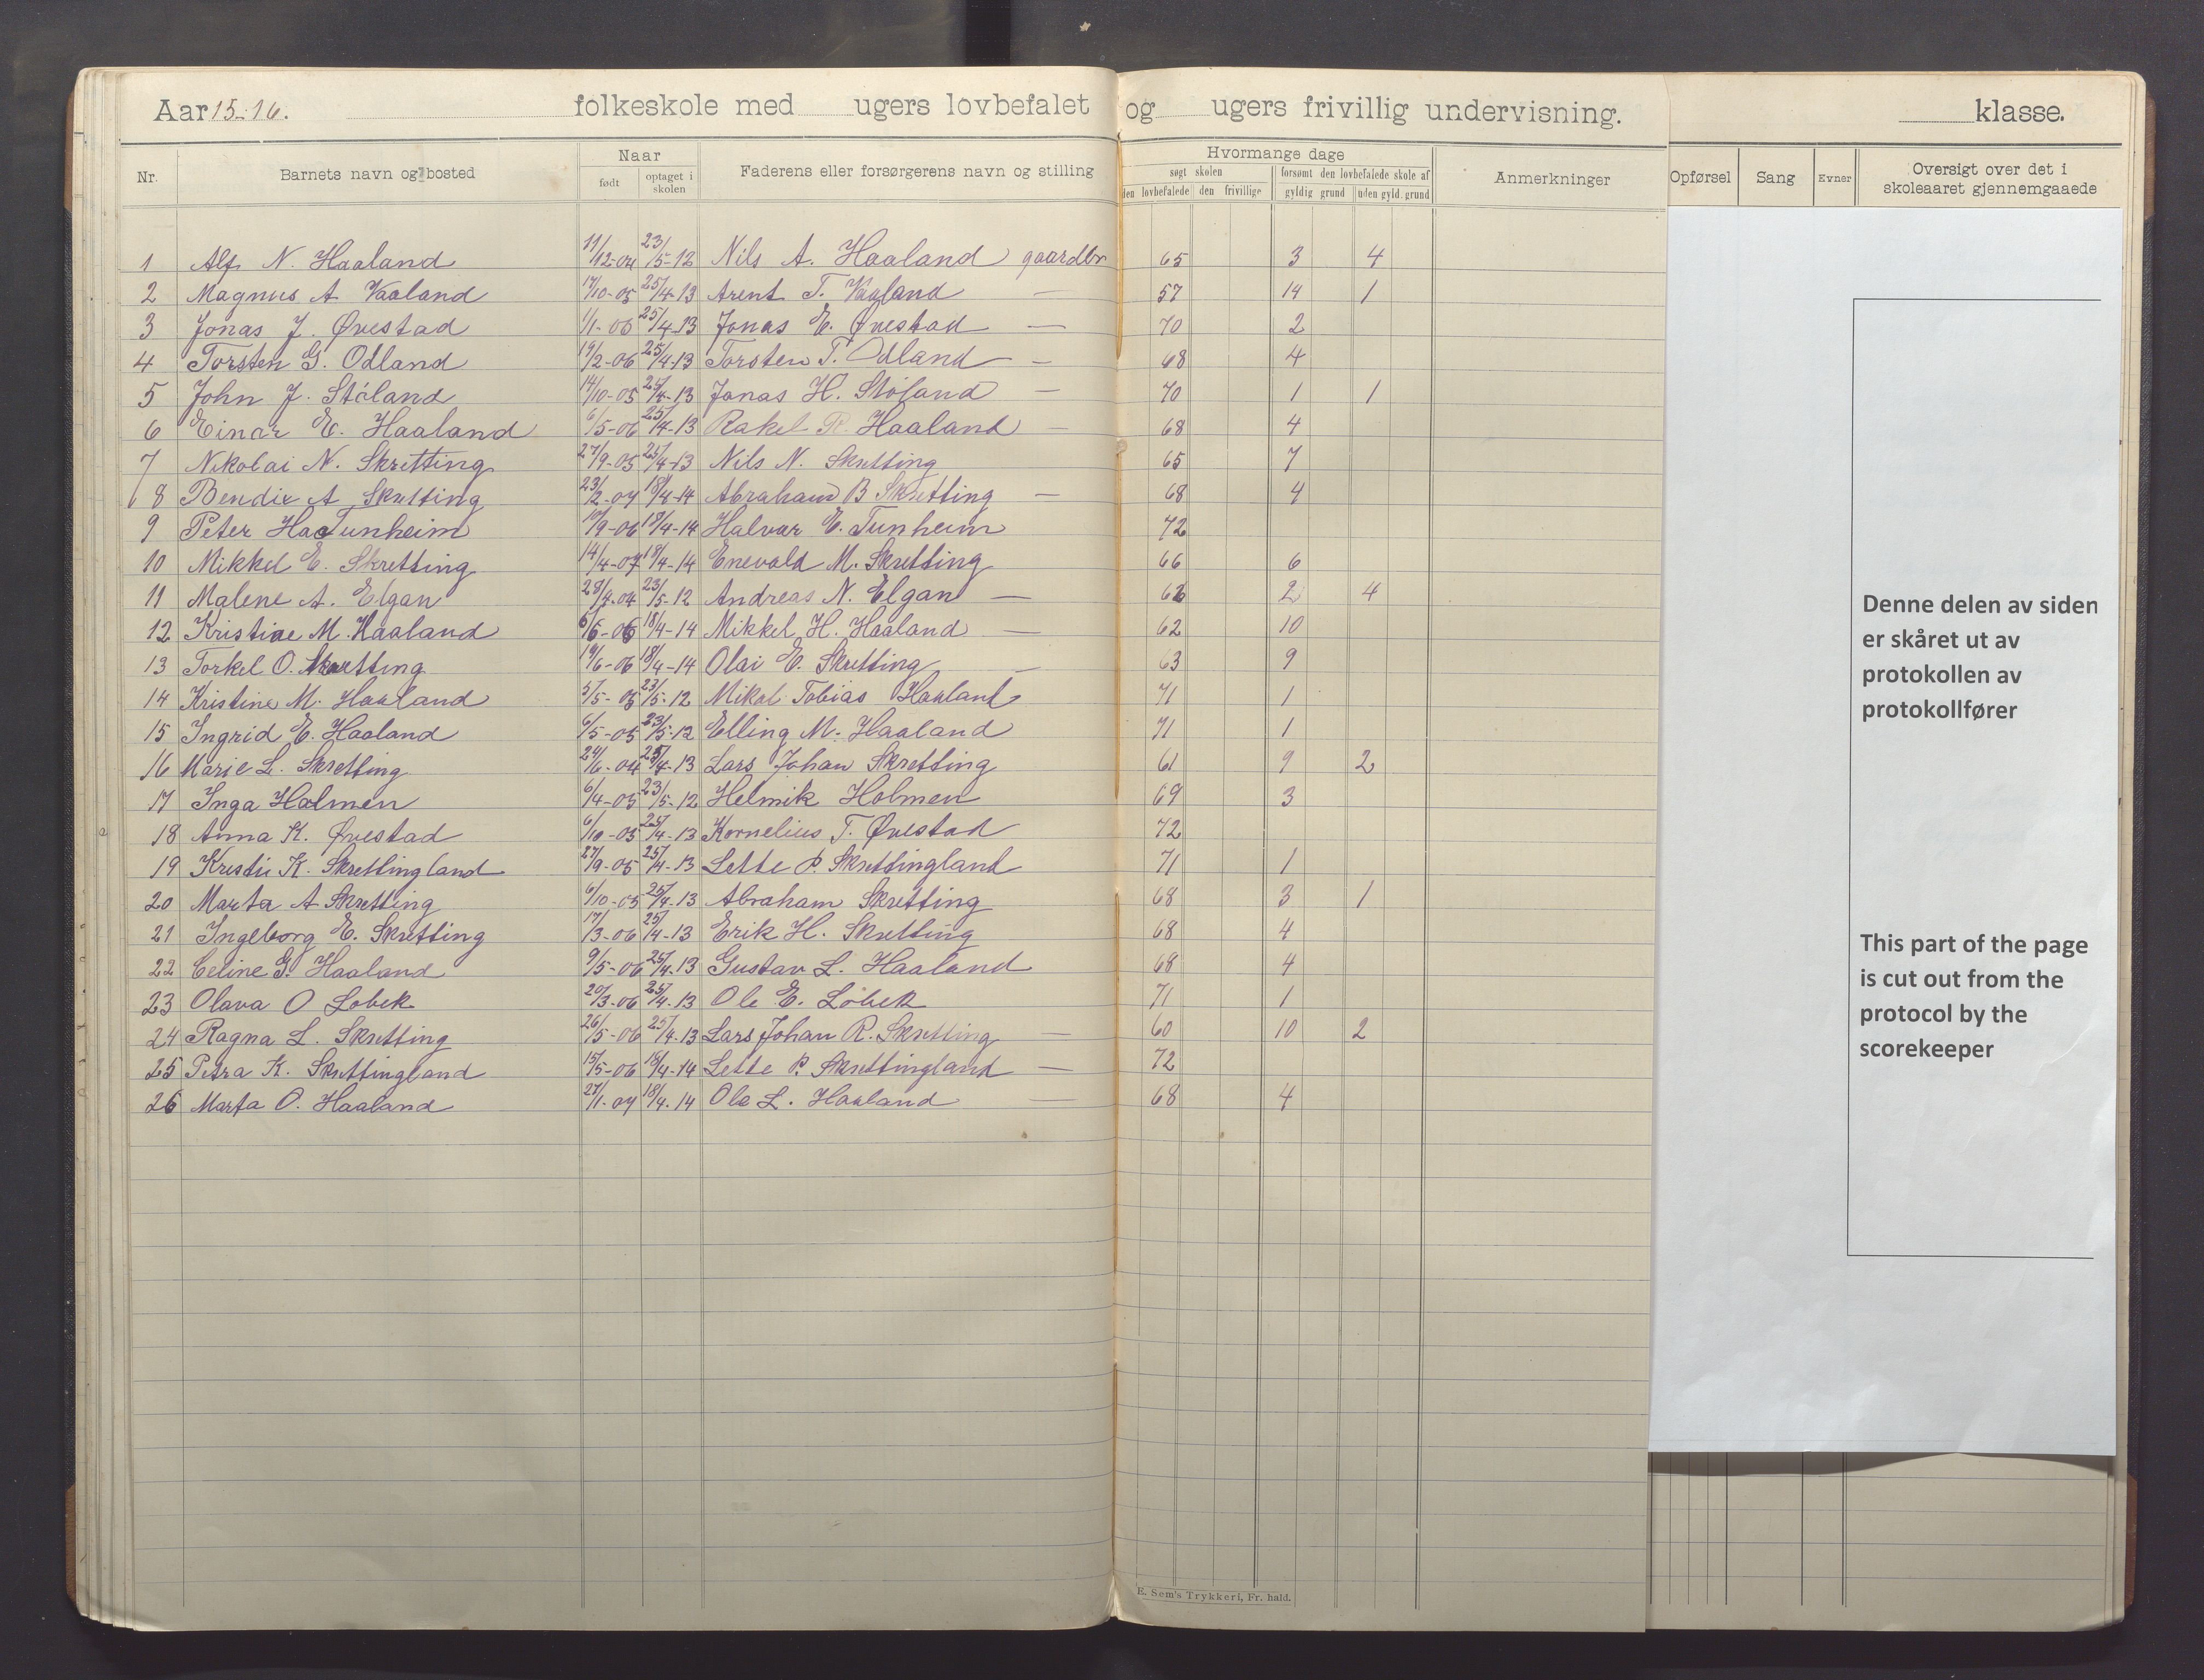 Aar 15-16. folkeskole med ugers lovbefalet og ugers frivillig undervisning. klasse.
Nr. Barnets navn og bosted Naar født optaget i skolen Faderens eller forsørgerens navn og stilling Hvormange dage søgt skolen den lovbefalede den frivillige forsømt den lovbefalede skole af gyldig grund uden gyld. grund Anmerkninger Opførsel Sang Evner Oversigt over det i skoleaaret gjennemgaaede
1 Alf N. Haaland 11/12-04 23/5-12 Nils A. Haaland gaardbr 65 3 4
2 Magnus A Vaaland 17/10-05 25/4-13 Arent T. Vaaland — 57 14 1
3 Jonas J. Øvestad 1/1-06 25/4-13 Jonas E. Øvestad — 70 2
4 Torsten G. Odland 19/2-06 25/4-13 Torsten T. Odland — 68 4
5 John J. Stöland 14/10-05 25/4-13 Jonas H. Stöland — 70 1 1
6 Einar E. Haaland 6/5-06 25/4-13 Rakel R. Haaland — 68 4
7 Nikolai N. Skretting 27/9-05 25/4-13 Nils N. Skretting 65 7
8 Bendix A Skretting 23/2-07 18/4-14 Abraham B Skretting — 68 4
9 Peter Ha Tunheim 10/9-06 18/4-14 Halvar E. Tunheim 72
10 Mikkel E. Skretting 14/4-07 18/4-14 Enevald M. Skretting 66 6
11 Malene A. Elgan 28/7-04 23/5-12 Andreas N. Elgan — 62 2 4
12 Kristine M. Haaland 5/6-06 18/4-14 Mikkel H. Haaland — 62 10
13 Torkel O. Skretting 19/6-06 18/4-14 Olai E. Skretting — 63 9
14 Kristine M. Haaland 5/5-05 23/5-12 Mikal Tobias Haaland 71 1
15 Ingrid E. Haaland 6/5-05 23/5-12 Elling M. Haaland 71 1
16 Marie L. Skretting 24/6-04 25/4-13 Lars Johan Skretting 61 9 2
17 Inga Holmen 6/4-05 23/5-12 Helmik Holmen 69 3
18 Anna K. Øvestad 6/10-05 25/4-13 Kornelius T. Øvestad 72
19 Kristi K. Skrettingland 27/9-05 25/4-13 Lette P. Skrettingland 71 1
20 Marta A Skretting 6/10-05 25/4-13 Abraham Skretting 68 3 1
21 Ingeborg E. Skretting 17/3-06 25/4-13 Erik H. Skretting 68 4
22 Celine G. Haaland 9/5-06 25/4-13 Gustav L. Haaland 68 4
23 Olava O Lobek 20/3-06 25/4-13 Ole E. Lobek 71 1
24 Ragna L. Skretting 26/5-06 25/4-13 Lars Johan R. Skretting — 60 10 2
25 Petra K. Skrettingland 15/5-06 18/4-14 Lette P. Skrettingland — 72
26 Marta O. Haaland 27/1-07 18/4-14 Ole L. Haaland — 68 4
E. Sem's Trykkeri, Fr. hald.
Denne delen av siden
er skåret ut av
protokollen av
protokollfører
This part of the page
is cut out from the
protocol by the
scorekeeper